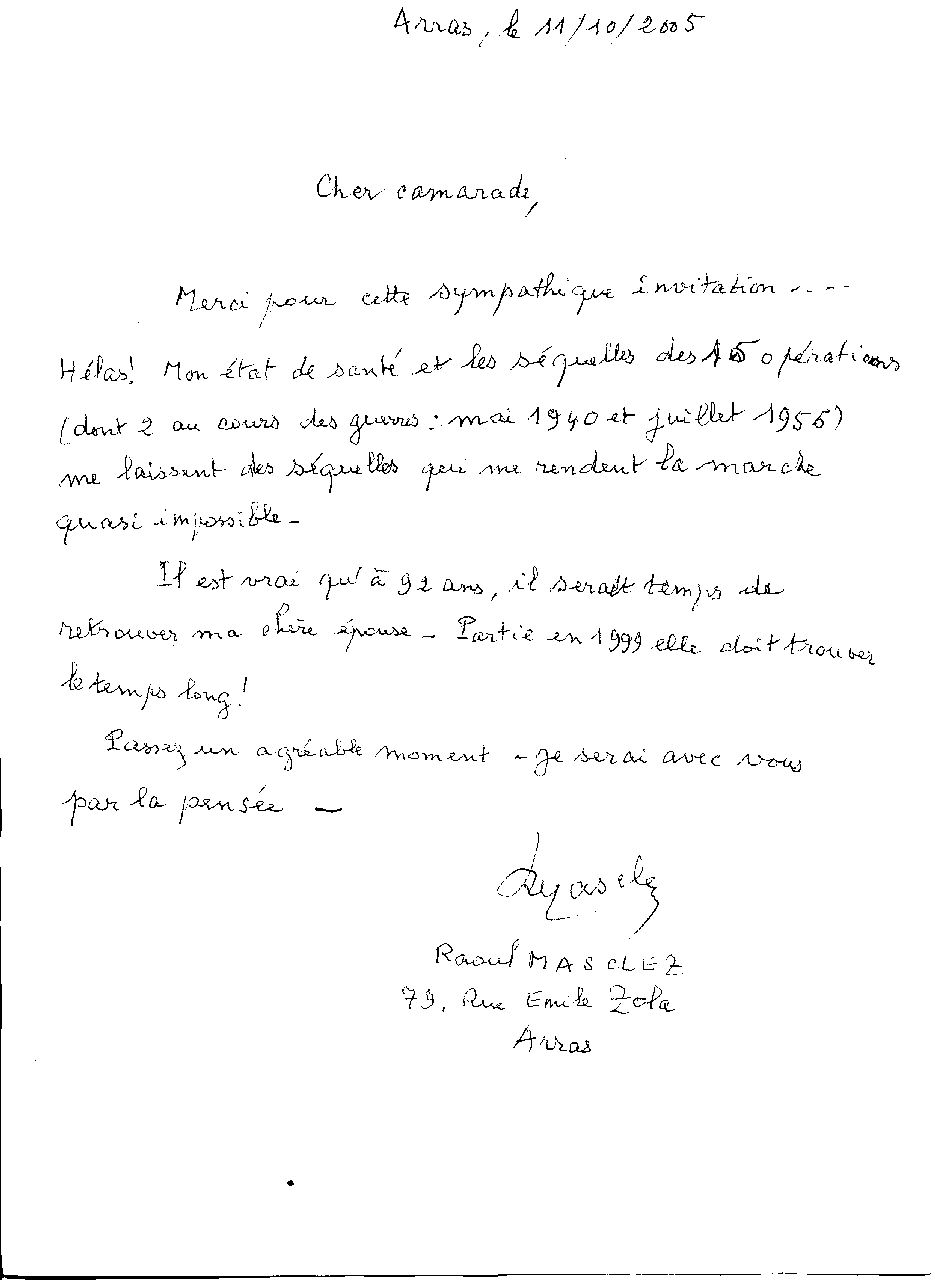 Arras, le 11/10/2005
Cher camarade,
Merci pour cette sympathique invitation ----
Hélas! Mon état de santé et les séquelles des 15 opérations
(dont 2 au cours des guerres : mai 1940 et juillet 1956)
me laissent des séquelles qui me rendent la marche
quasi impossible -
Il est vrai qu'à 92 ans, il serait temps de
retrouver ma chère épouse - Partie en 1999 elle doit trouver
le temps long!
Passez un agréable moment - Je serai avec vous
par la pensée -
RMasclez
Raoul MASCLEZ
79, Rue Emile Zola
Arras